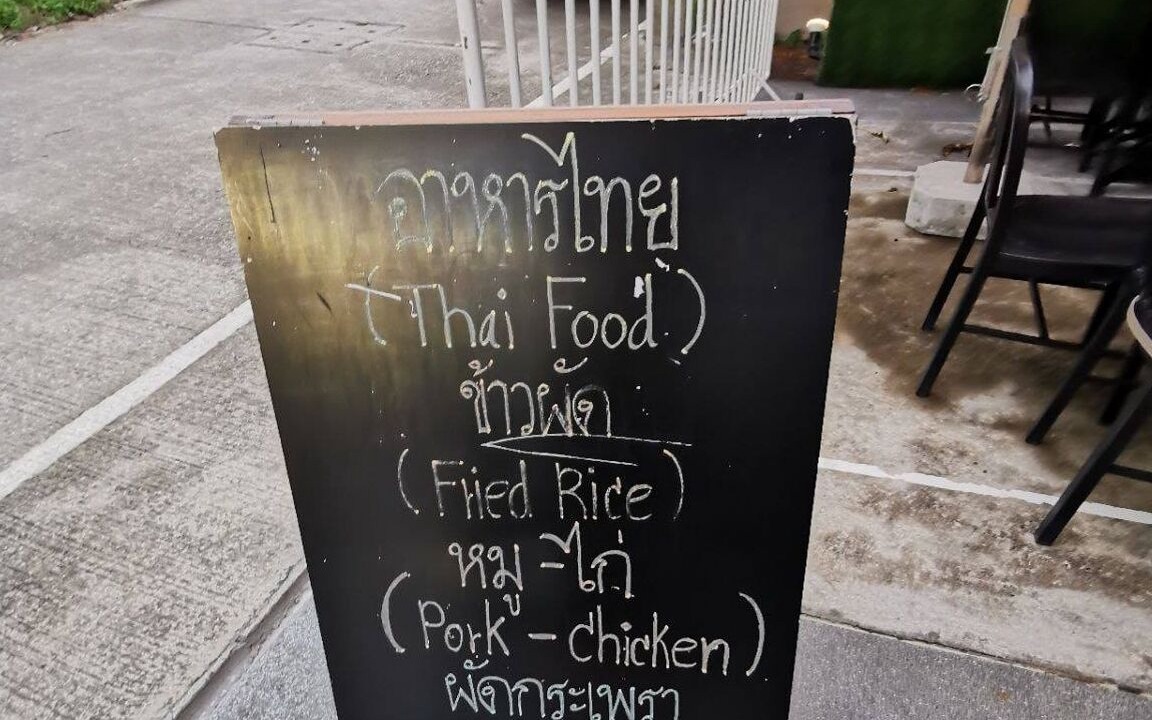 อาหารไทย
(Thai Food)
ข้าวผัด
(Fried Rice)
หมู-ไก่
(Pork - chicken)
ผัดกระเพรา